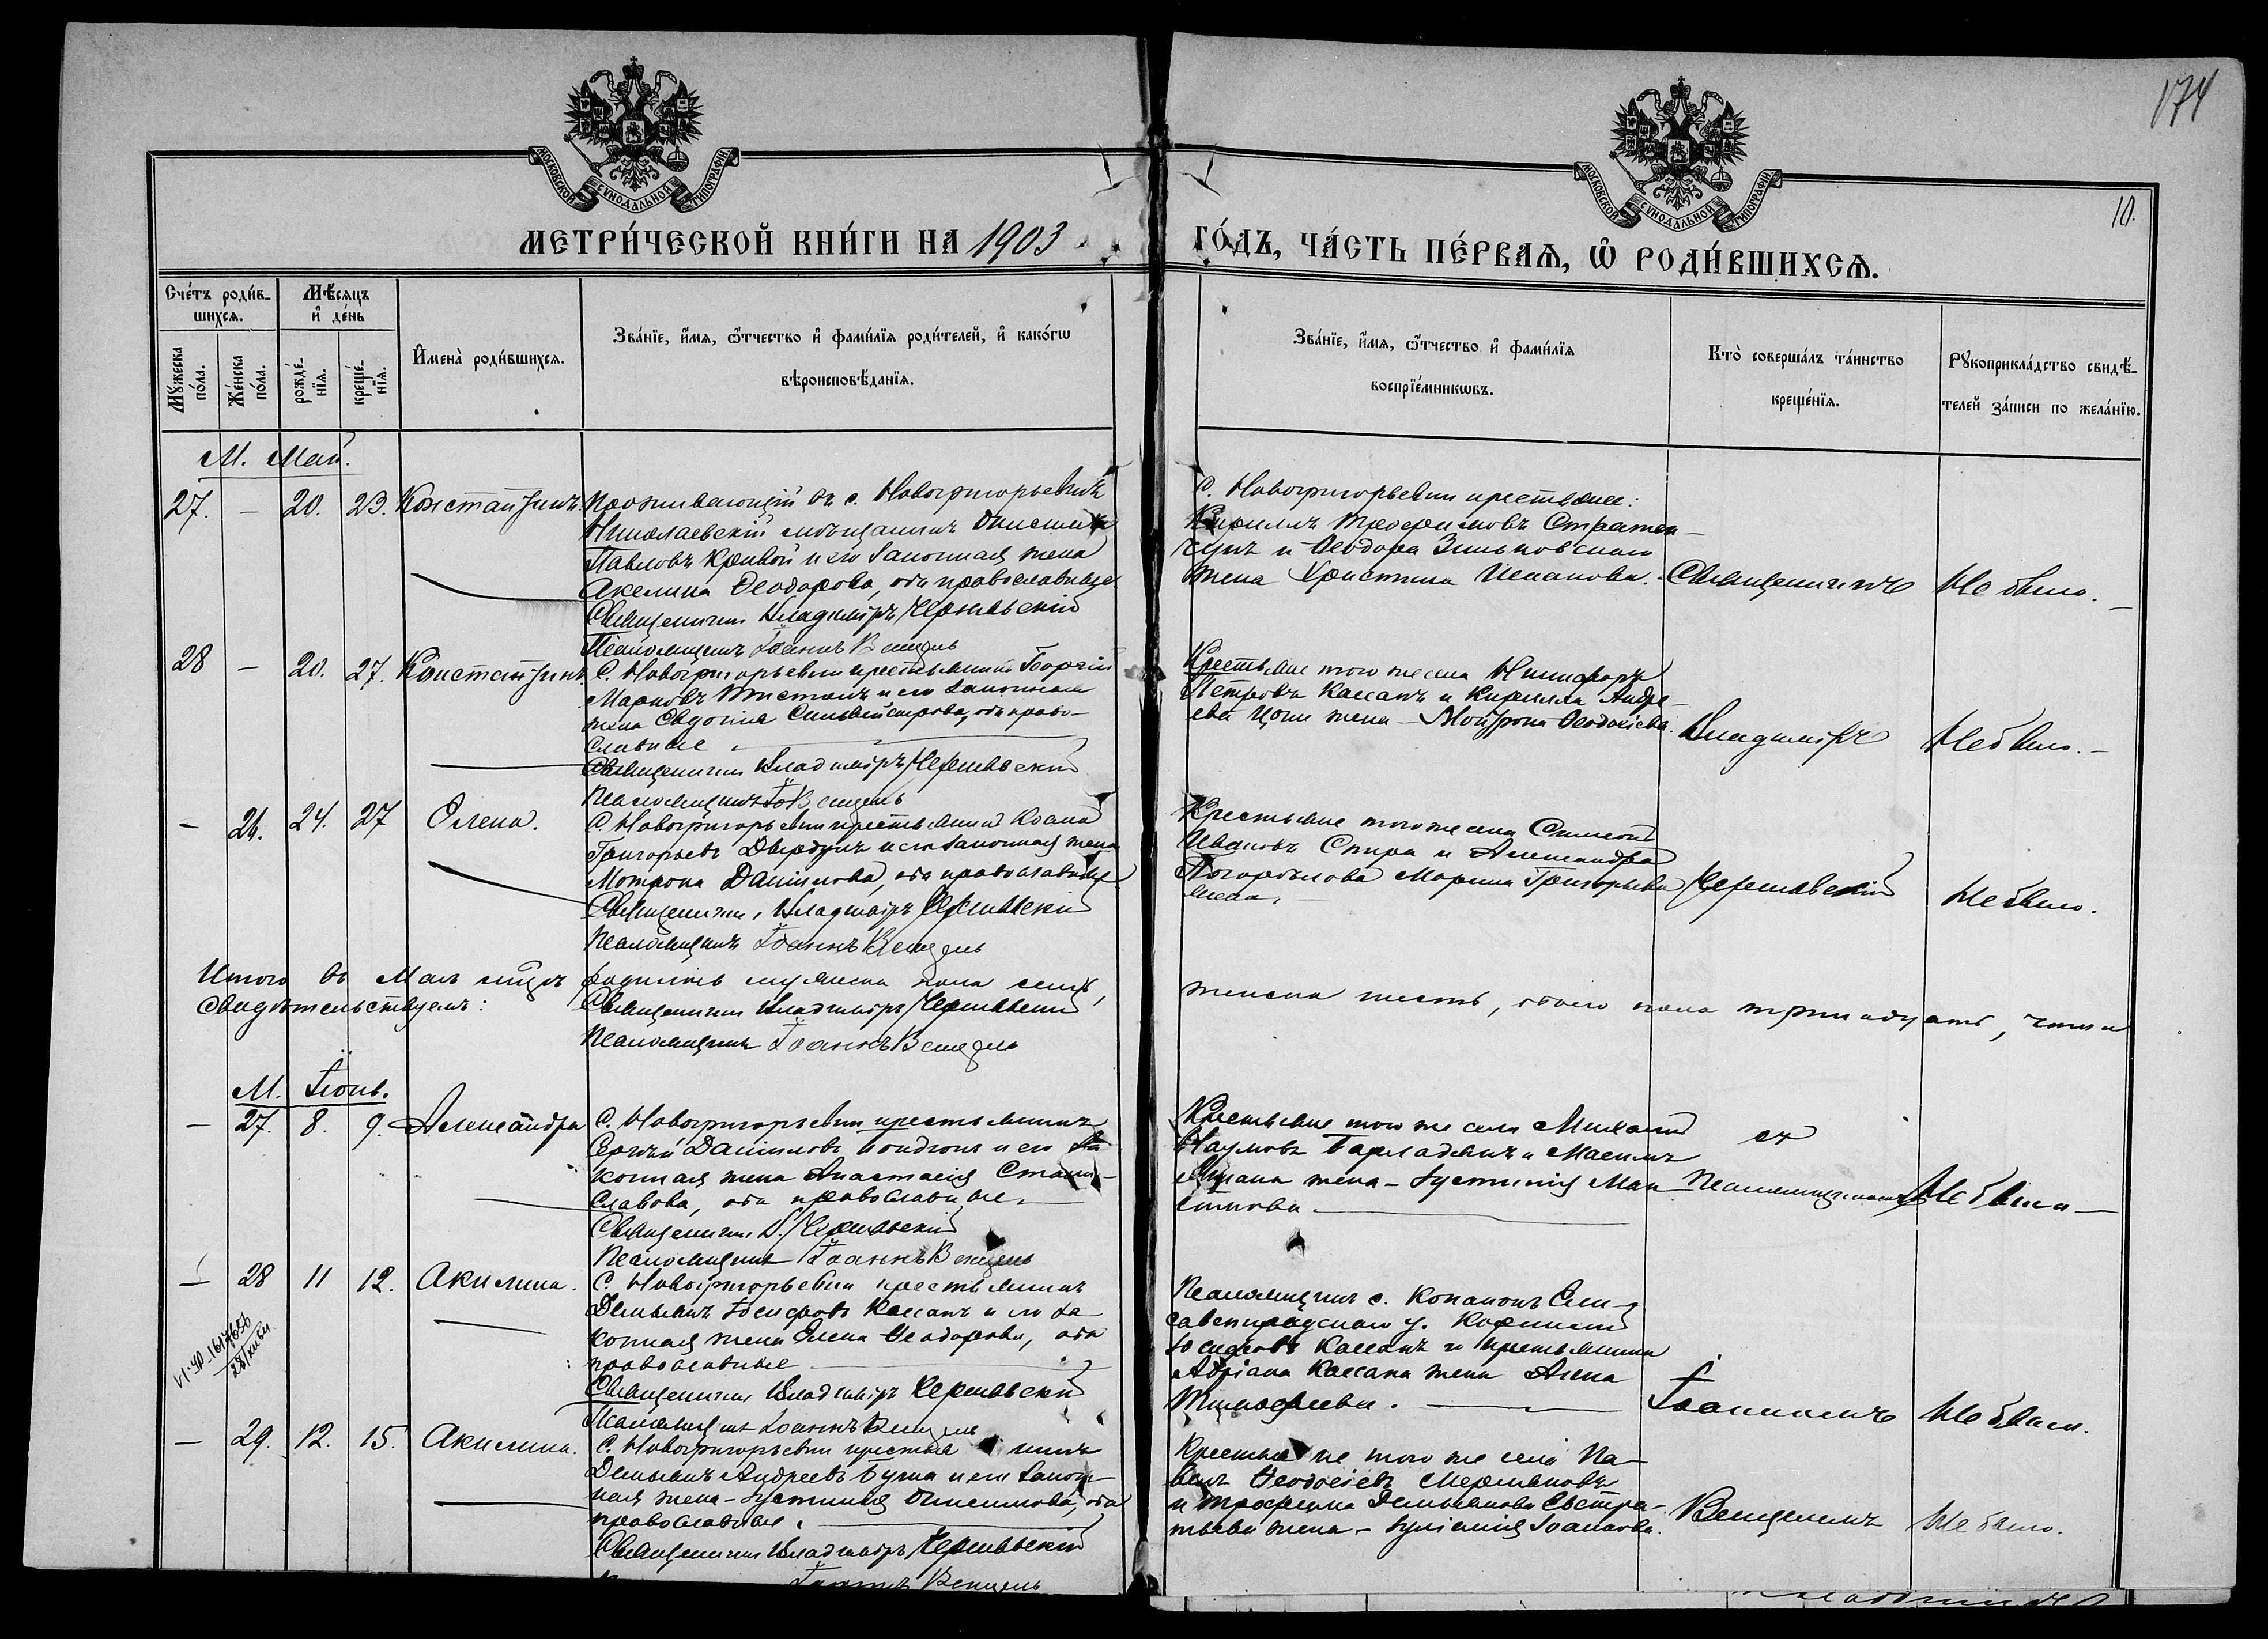 174
10.
МОСКОВСКОЙ СѴНОДАЛЬНОЙ ТИПОГРАФІИ
МОСКОВСКОЙ СѴНОДАЛЬНОЙ ТИПОГРАФІИ
МЕТРИ́ЧЕСКОЙ КНИ́ГИ НА 1903
ГО́ДЪ, ЧА́СТЬ ПЕ́РВАѦ, Ѡ҆ РОДИ́ВШИХСѦ.
Сче́тъ роди́в-
шихсѧ.
Мѣ́сяцъ
и҆ де́нь
Мꙋ́жеска
по́ла.
Же́нска
по́ла.
рожде́-
нїѧ.
креще́-
нїѧ.
И҆мена̀ роди́вшихсѧ.
Зва́нїе, и҆́мѧ, ѻ҆́тчество и҆ фами́лїѧ роди́телей, и҆ како́гѡ
вѣроисповѣ́данїѧ.
Зва́нїе, и҆́мѧ, ѻ҆́тчество и҆ фами́лїѧ
воспрїе́мникѡвъ.
Кто̀ соверша́лъ та́инство
креще́нїѧ.
Рꙋкоприкла́дство свидѣ́-
телей за́писи по жела́нїю.
М. Май.
27. — 20. 23. Константинъ.
Проживающій въ с. Новогригорьевкѣ
Николаевскій мѣщанинъ
Павловъ Кривой и его законная жена
Акелина Ѳеодорова, оба православные
Священникъ Владиміръ Чернявскій
Псаломщикъ Іоаннъ Венцель
С. Новогригорьевки крестьяне:
Кириллъ Трофимовъ
и Ѳеодора Зиньковскаго
жена Христина
Священникъ
Не было. —
28 — 20. 27. Константинъ
С. Новогригорьевки крестьянинъ Георгій
Марковъ и его законная
жена Евдокія Сильвестрова, оба право-
славные
Священникъ Владиміръ Чернявскій
Псаломщикъ Іо Венцель
Крестьяне того же села Никифоръ
Петровъ Кассапъ и Кирилла Андре-
ева жена — Мотрона
Владиміръ
Не было. —
— 26. 24. 27 Олена.
С. Новогригорьевки крестьянинъ
Григорьевъ и его законная жена
Мотрона Даніилова, оба православные
Священникъ, Владиміръ Чернявскій
Псаломщикъ Іоаннъ Венцель
Крестьяне того же села Симеонъ
Ивановъ Спира и Александра
Погорѣлова Марина Григорьева
жена.
Чернявскій
Не было.
Итого въ Маѣ м-цѣ родилось мужска пола семь,
женска шесть, обоего пола тринадцать, что и
свидѣтельствуемъ:
Священникъ Владиміръ Чернявскій
Псаломщикъ Іоаннъ Венцель
М. Іюнь.
— 27. 8. 9. Александра
С. Новогригорьевки крестьянинъ
Сергѣй Даніиловъ и его за-
конная жена Анастасія Стани-
славова, оба православные.
Священникъ В. Чернявскій
Псаломщикъ Іоаннъ Венцель
Крестьяне того же села Михаилъ
Наумовъ и Максима
жена — Іустинія
съ
Псаломщикомъ
Не было —
— 28 11 12. Акилина.
С. Новогригорьевки крестьянинъ
Демьянъ Іосифовъ Кассапъ и его за-
конная жена Елена Ѳеодорова, оба
православные
Священникъ Владиміръ Чернявскій
Псаломщикъ Іоаннъ Венцель
Псаломщикъ с. Ели-
саветградскаго у.
Іосифовъ Кассапъ и крестьянина
Адріана Кассапа жена Анна
Тимоѳеева.
Іоанномъ
Не было.
— 29. 12. 15. Акилина.
С. Новогригорьевки крестьянинъ
Демьянъ Андреевъ и его закон-
ная жена — Іустинія Онисимова, оба
православные.
Священникъ Владиміръ Чернявскій
Іоаннъ Венцель
Крестьяне того же села Па-
велъ Ѳеодосіевъ
и Трофима Демьянова Евстра-
тьева жена — Іуліанія Іоанова.
Венцелемъ
Не было.